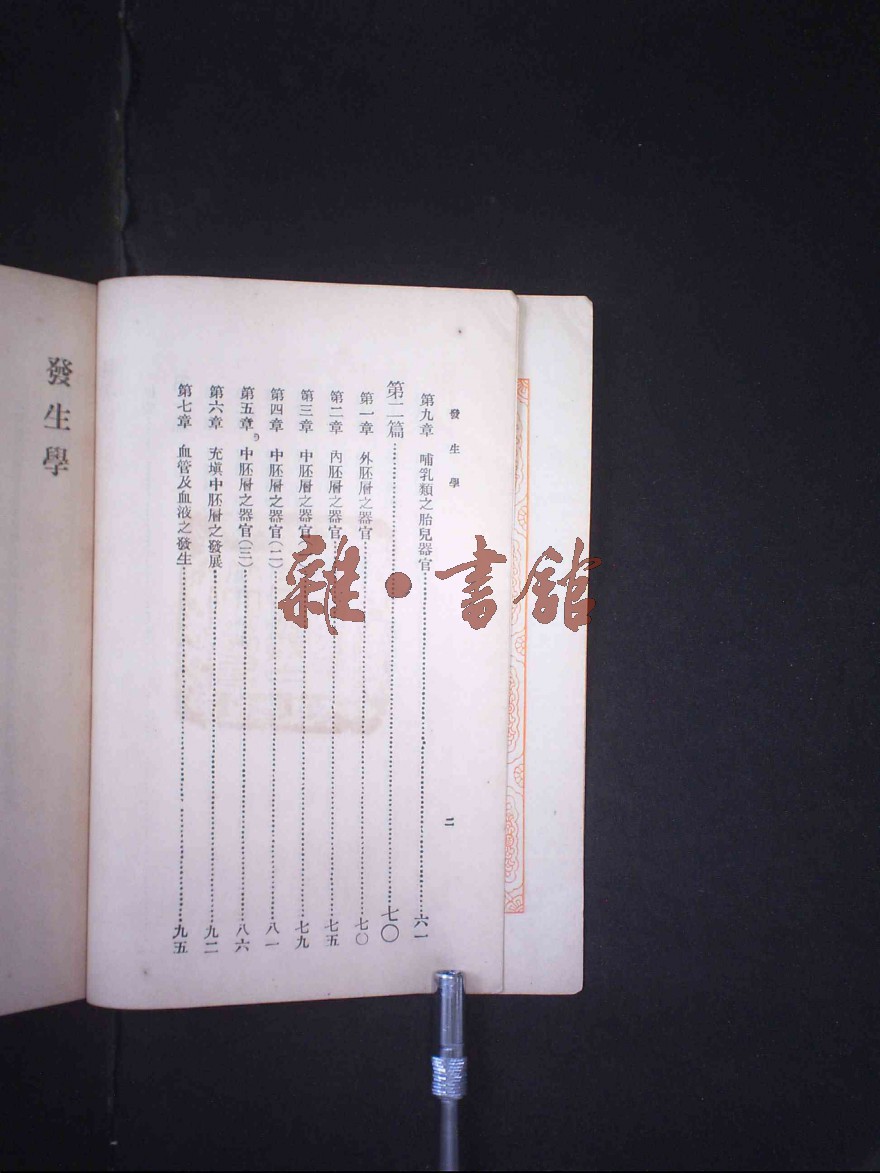 發生學
二
第九章 哺乳類之胎兒器官……六一
第二篇……七〇
第一章 外胚層之器官……七〇
第二章 內胚層之器官……七五
第三章 中胚層之器官……七九
第四章 中胚層之器官(二)……八一
第五章 中胚層之器官(三)……八六
第六章 充塡中胚層之發展……九二
第七章 血管及血液之發生……九五
發生學
雜·書館